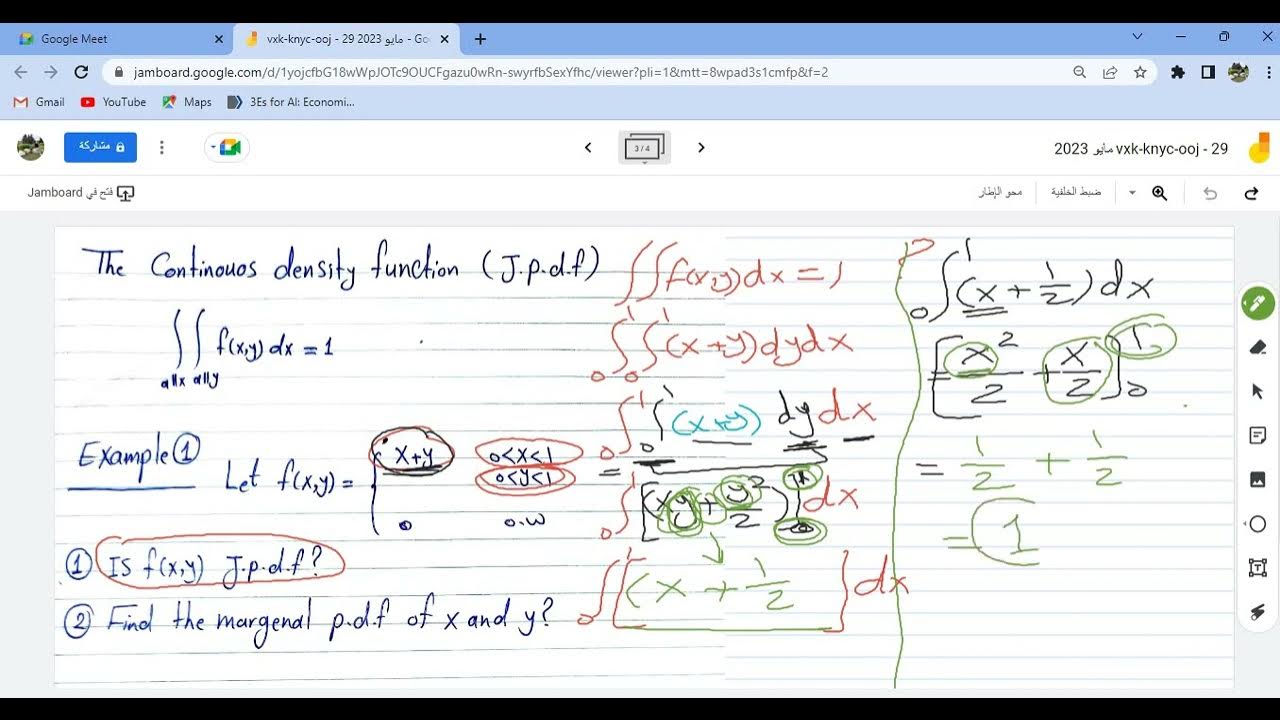 Google Meet
vxk-knyc-ooj - 29 مايو 2023 - Go
jamboard.google.com/d/1yojcfbG18wWpJOTc9OUCFgazu0wRn-swyrfbSexYfhc/viewer?pli=1&mtt=8wpad3s1cmfp&f=2
Gmail YouTube Maps 3Es for AI: Economi...
مشاركة
3 / 4
vxk-knyc-ooj - 29 مايو 2023
فتح في Jamboard
محو الإطار
ضبط الخلفية
The Continouos density function (J.p.d.f)
∫∫ f(x,y) dx = 1
all x all y
Example ①
Let f(x,y) = { x+y 0<x<1
0<y<1
0 o.w
① Is f(x,y) J.p.d.f?
② Find the margenal p.d.f of x and y?
∫∫ f(x,y) dx = 1
∫₀¹ ∫₀¹ (x+y) dy dx
= ∫₀¹ ∫₀¹ (x+y) dy dx
∫₀¹ [(xy + y²/2)]₀¹ dx
∫₀¹ [(x + 1/2] dx
∫₀¹ (x + 1/2) dx
= [x²/2 + x/2]₀¹
= 1/2 + 1/2
= 1